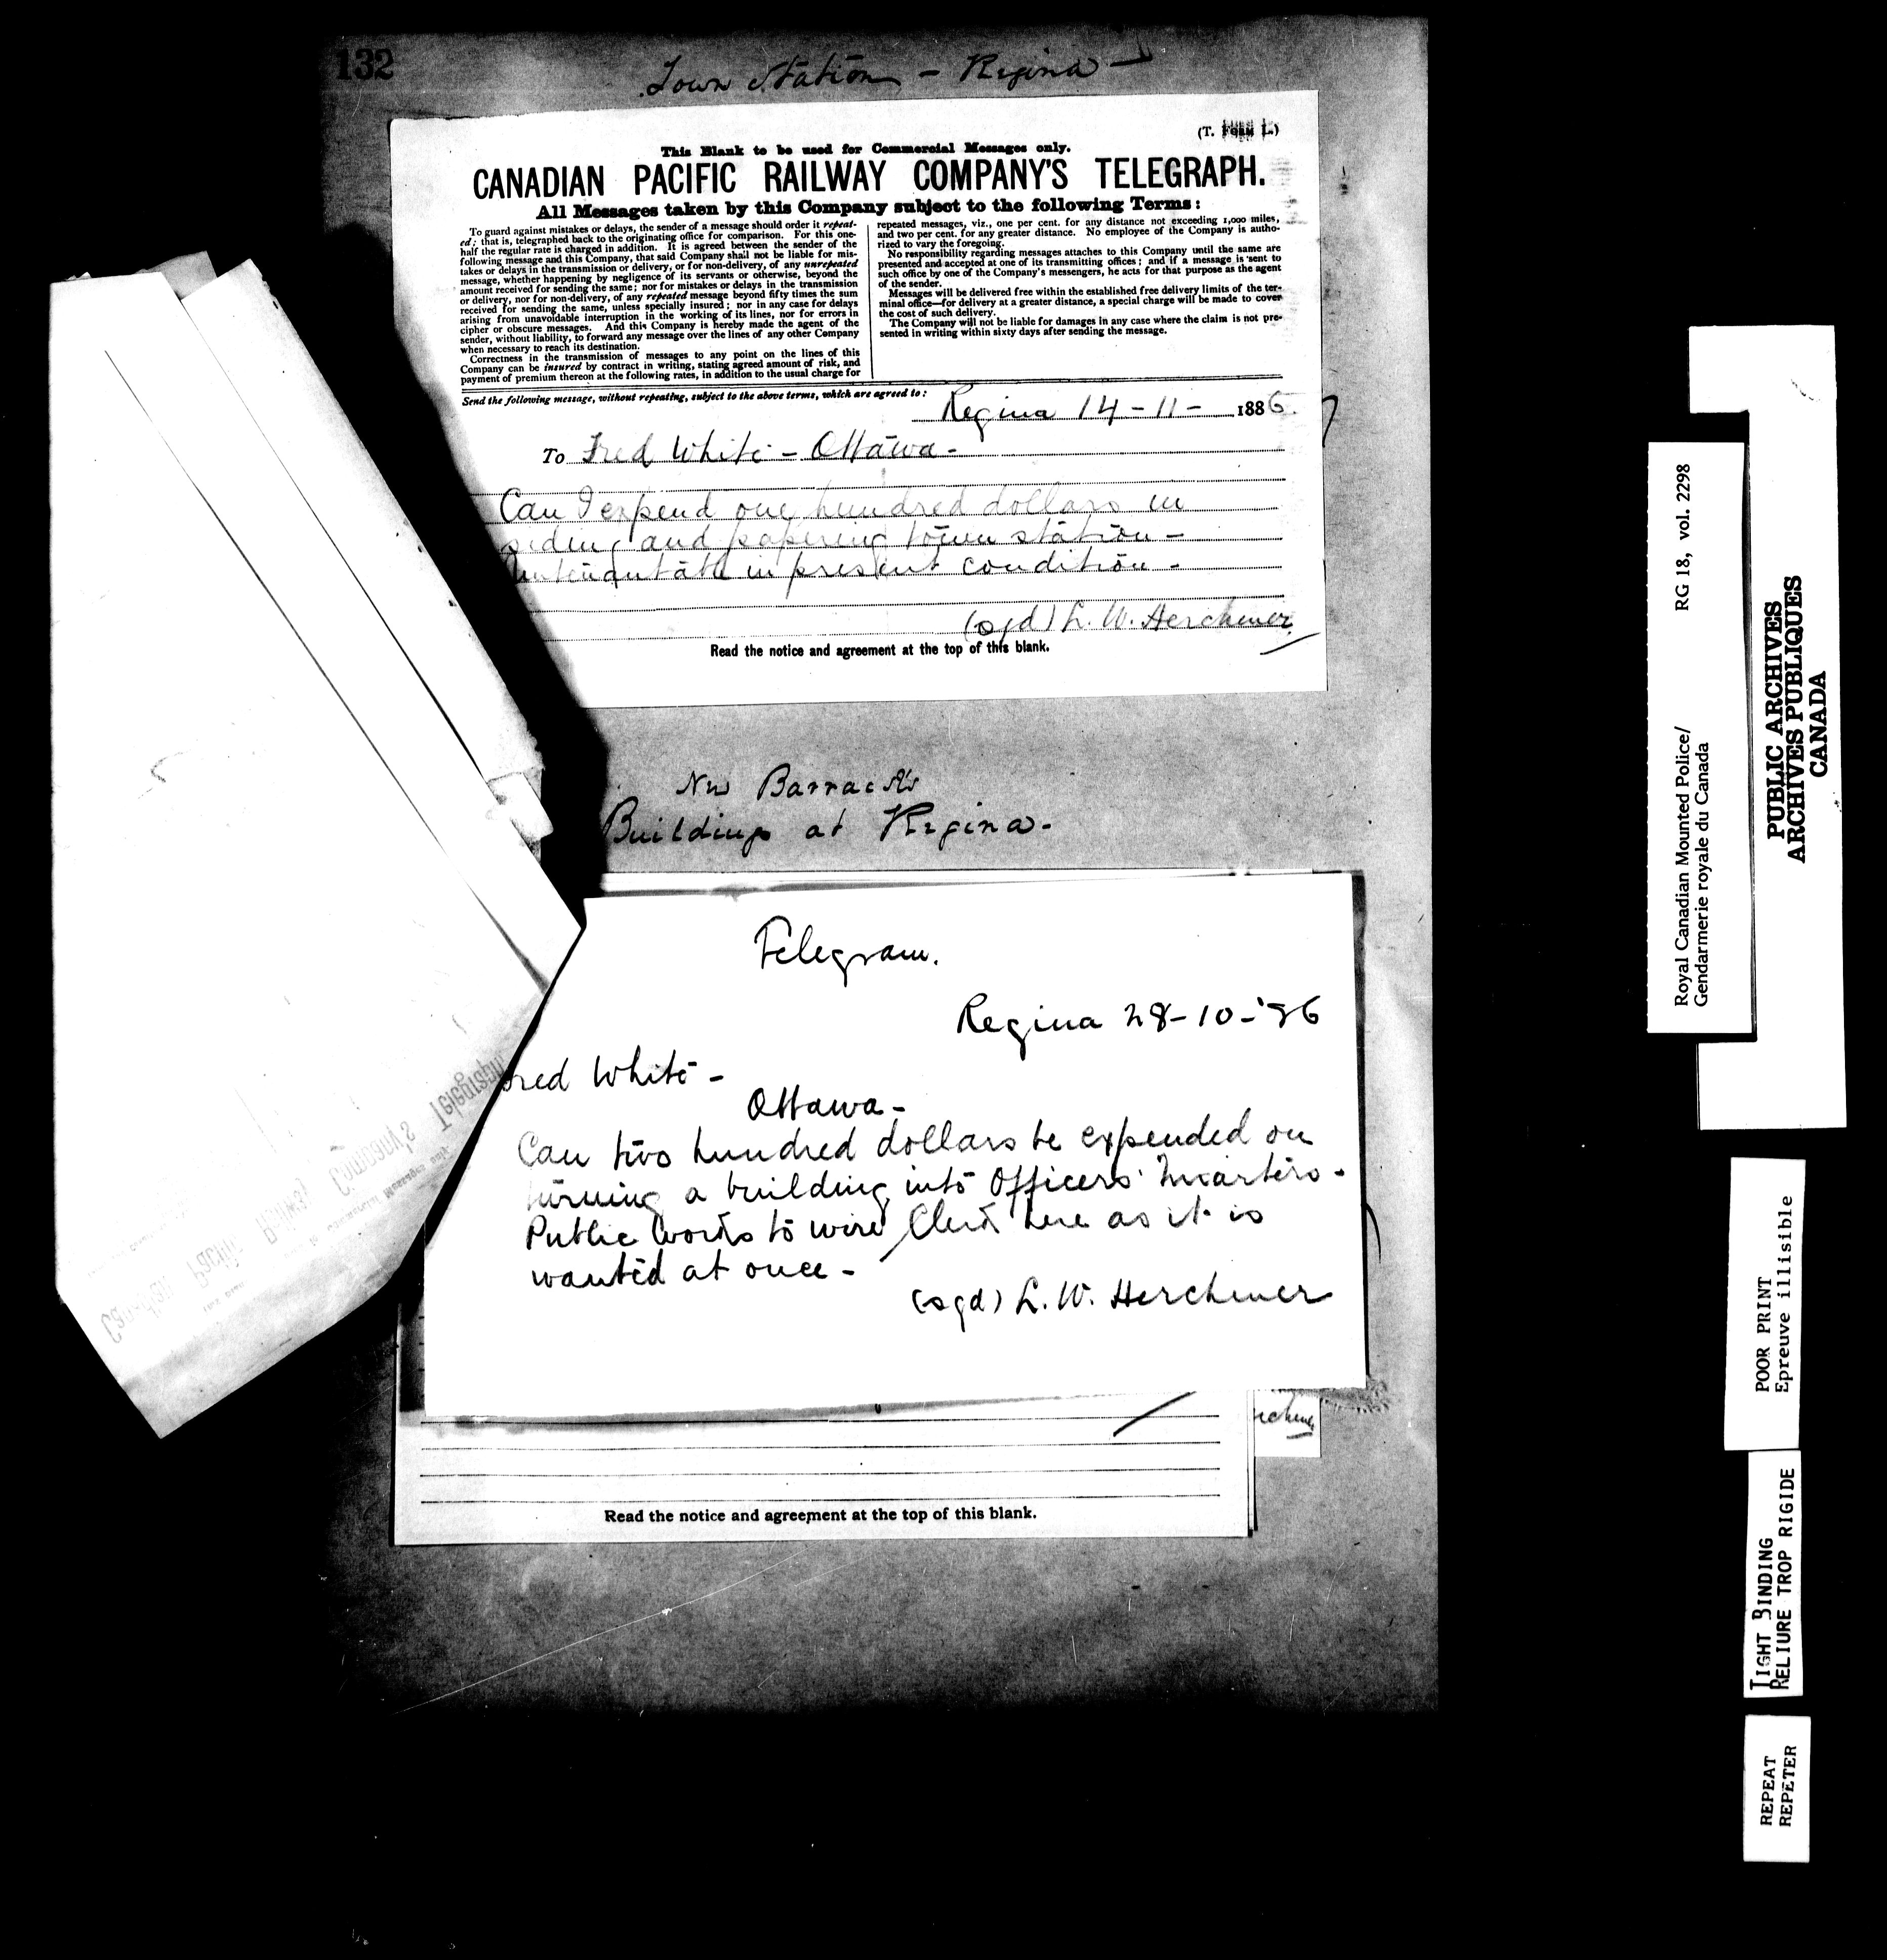 132
Town Station - Regina -
(T. Form 1.)
This Blank to be used for Commercial Messages only.
CANADIAN PACIFIC RAILWAY COMPANY'S TELEGRAPH.
All Messages taken by this Company subject to the following Terms:
To guard against mistakes or delays, the sender of a message should order it repeat-
ed; that is, telegraphed back to the originating office for comparison. For this one-
half the regular rate is charged in addition. It is agreed between the sender of the
following message and this Company, that said Company shall not be liable for mis-
takes or delays in the transmission or delivery, or for non-delivery, of any unrepeated
message, whether happening by negligence of its servants or otherwise, beyond the
amount received for sending the same; nor for mistakes or delays in the transmission
or delivery, nor for non-delivery, of any repeated message beyond fifty times the sum
received for sending the same, unless specially insured; nor in any case for delays
arising from unavoidable interruption in the working of its lines, nor for errors in
cipher or obscure messages. And this Company is hereby made the agent of the
sender, without liability, to forward any message over the lines of any other Company
when necessary to reach its destination.
Correctness in the transmission of messages to any point on the lines of this
Company can be insured by contract in writing, stating agreed amount of risk, and
payment of premium thereon at the following rates, in addition to the usual charge for
repeated messages, viz., one per cent. for any distance not exceeding 1,000 miles,
and two per cent. for any greater distance. No employee of the Company is autho-
rized to vary the foregoing.
No responsibility regarding messages attaches to this Company until the same are
presented and accepted at one of its transmitting offices; and if a message is sent to
such office by one of the Company's messengers, he acts for that purpose as the agent
of the sender.
Messages will be delivered free within the established free delivery limits of the ter-
minal office—for delivery at a greater distance, a special charge will be made to cover
the cost of such delivery.
The Company will not be liable for damages in any case where the claim is not pre-
sented in writing within sixty days after sending the message.
Send the following message, without repeating, subject to the above terms, which are agreed to:
Regina 14-11- 1886.
To Fred White - Ottawa -
Can I expend one hundred dollars in
siding and papering town station -
untenantable in present condition -
(sgd) L. W. Herchmer
Read the notice and agreement at the top of this blank.
New Barracks
Buildings at Regina -
Telegram.
Regina 28-10-'86
Fred White -
Ottawa -
Can two hundred dollars be expended on
turning a building into Officers' Quarters -
Public Works to wire Clerk here as it is
wanted at once -
(sgd) L. W. Herchmer
Read the notice and agreement at the top of this blank.
Canadian Pacific Railway Company's Telegraph
RG 18, vol. 2298
Royal Canadian Mounted Police/
Gendarmerie royale du Canada
PUBLIC ARCHIVES
ARCHIVES PUBLIQUES
CANADA
POOR PRINT
Epreuve illisible
TIGHT BINDING
RELIURE TROP RIGIDE
REPEAT
REPETER